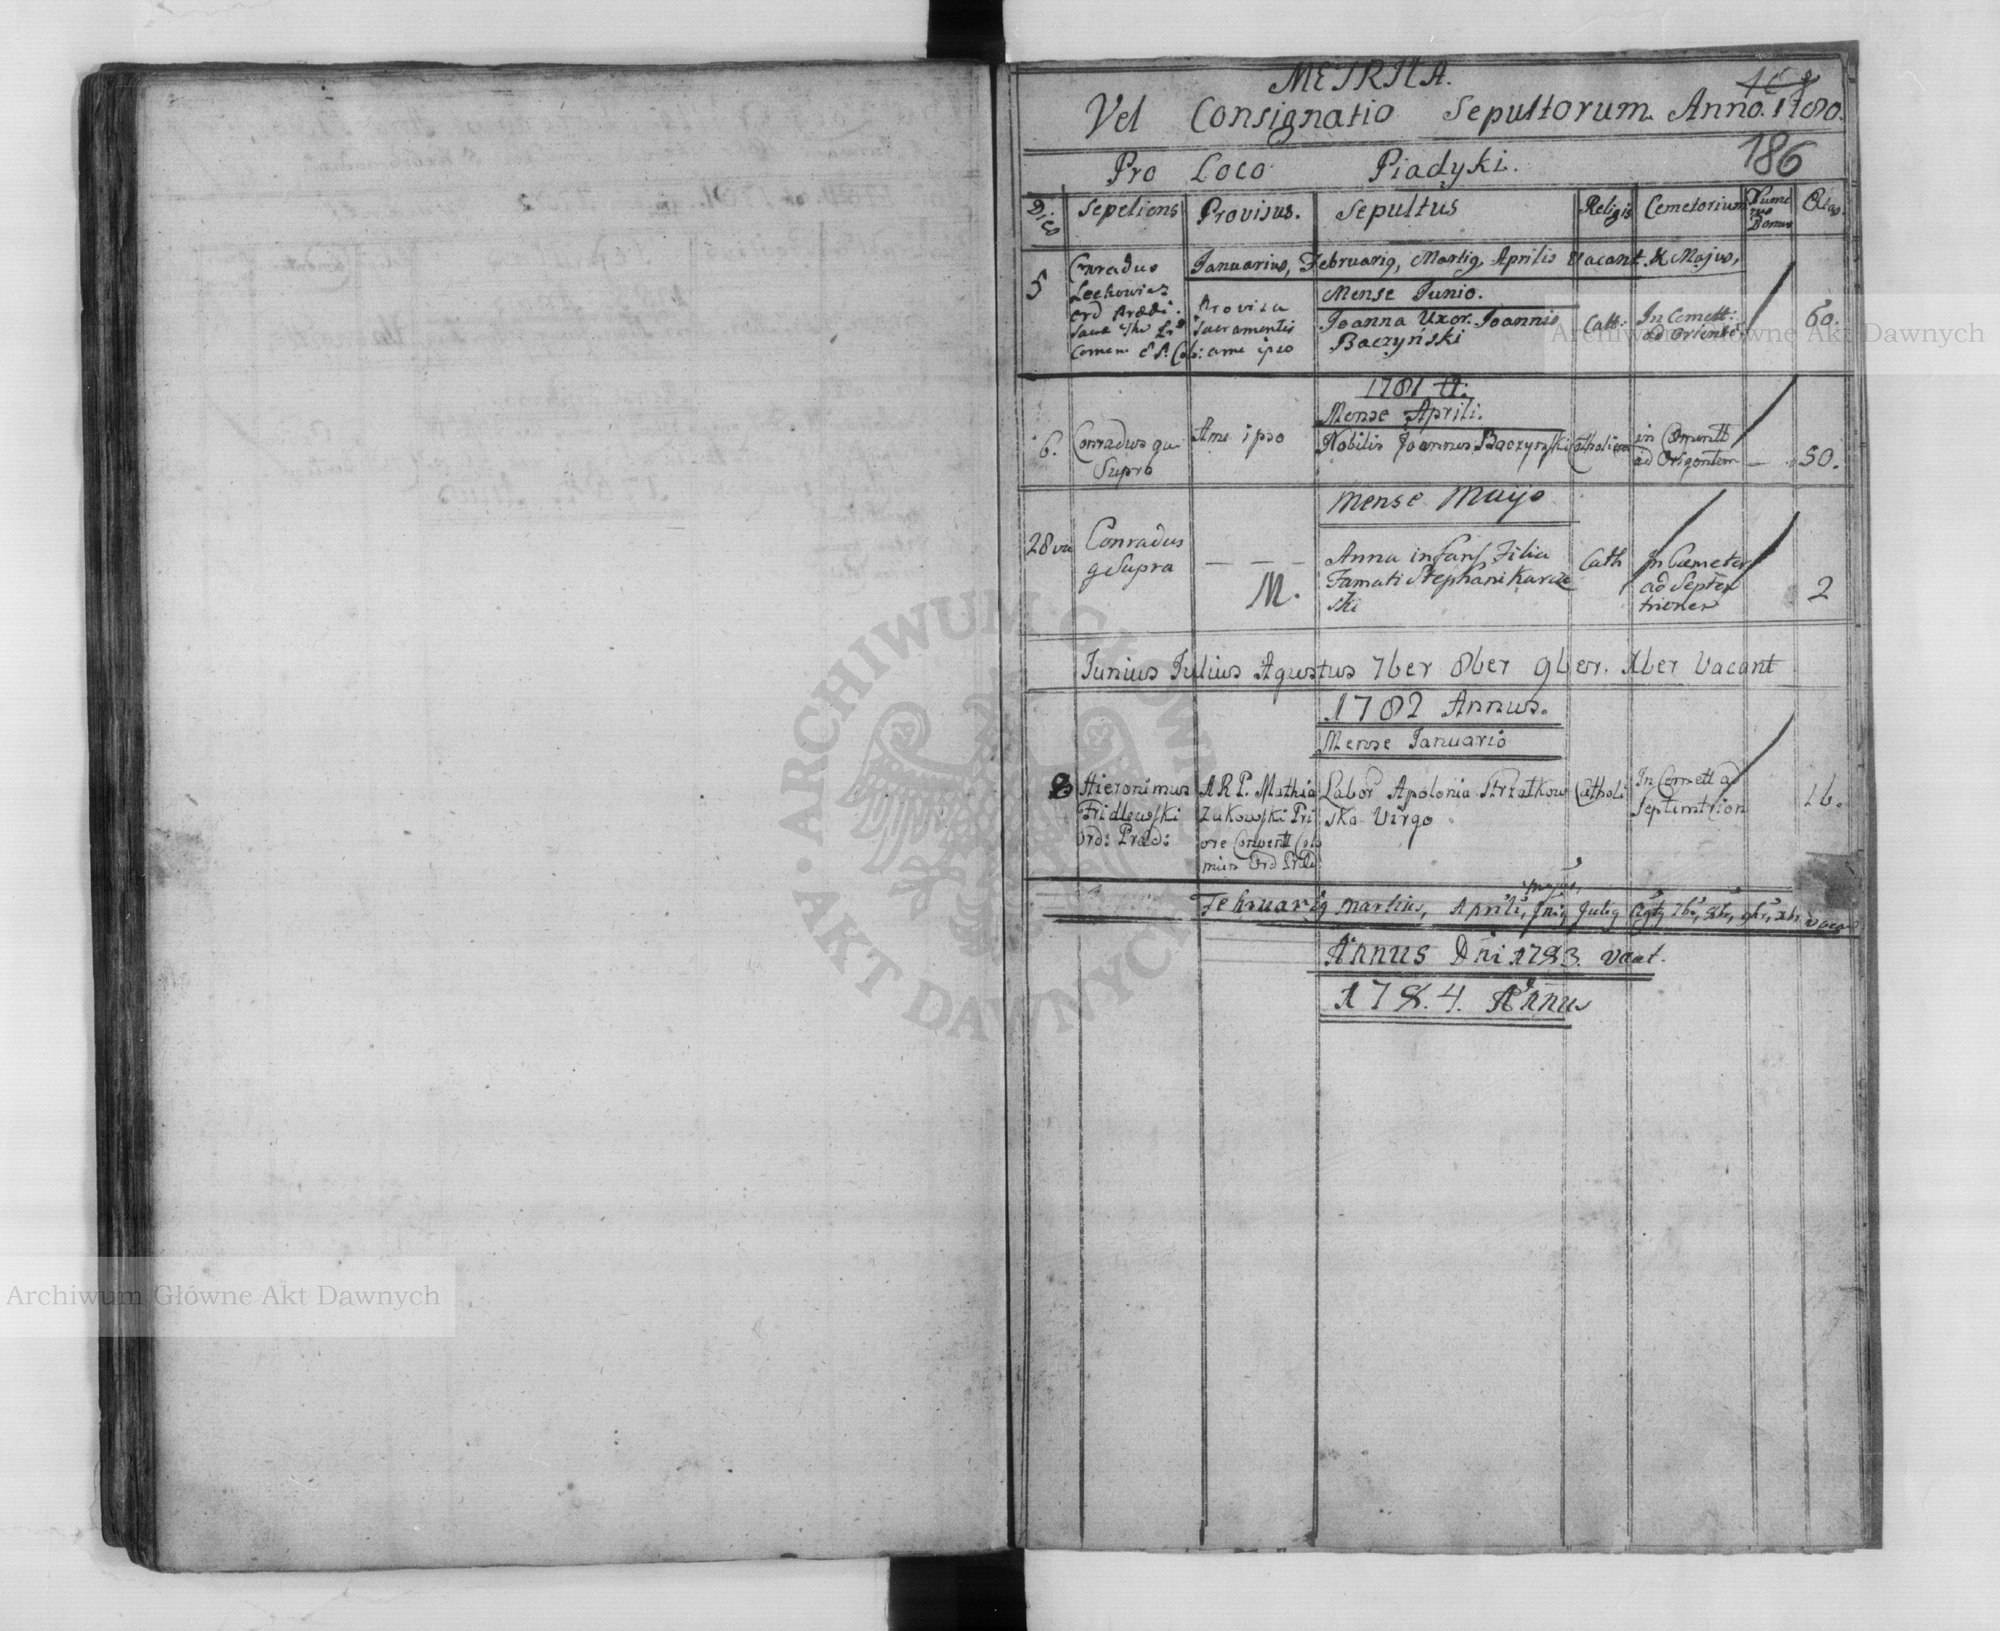 METRICA.
Vel Consignatio Sepultorum Anno. 1780.
186
Pro Loco Piadyki.
Dies
Sepeliens
Provisus.
Sepultus
Religio
Cemetorium
Nume
rus
Domus
Januarius, Februarig, Martig, Aprilis Vacant & Majus,
5
Conradus
Leckowicz
Ord Prædi:
Provisa
Sacramentis
a me ipso
Mense Junio.
Joanna Uxor Joannis
Baczyński
Cath:
In Cemett:
ad Orient
60.
1781 A:
Mense Aprili.
6.
Conradus qu
Supra
A me ipso
Nobilis Joannes Baczynski
Catholicus
in Cementt
ad Origontem
—
50.
Mense Mayo
28va
Conradus
q Supra
— — —
M.
Anna infans Filia
Famati Stephani Karcze
ski
Cath
In Cæmeter
ad Septen
trionem
2
Junius Julius Agustus 7ber 8ber 9ber. Xber Vacant
1782 Annus.
Mense Januario
8
Hieronimus
Fridlewski
Ord: Præd:
A R P. Mathia
Zukowski Pri
ore Conventt Colo
miin Ord Præd
Labor Apolonia Strzałkow
ska Virgo
Catholi
In Cemett ad
Septemtrion
16.
Majus,
Februarig Martius, Aprilis, Junig Julig Agtg 7br, 8br, 9br, Xbr, vacat
Annus Dni 1783 vacat.
1784. Annus
ARCHIWUM GŁÓWNE
AKT DAWNYCH
Archiwum Główne Akt Dawnych
Archiwum Główne Akt Dawnych